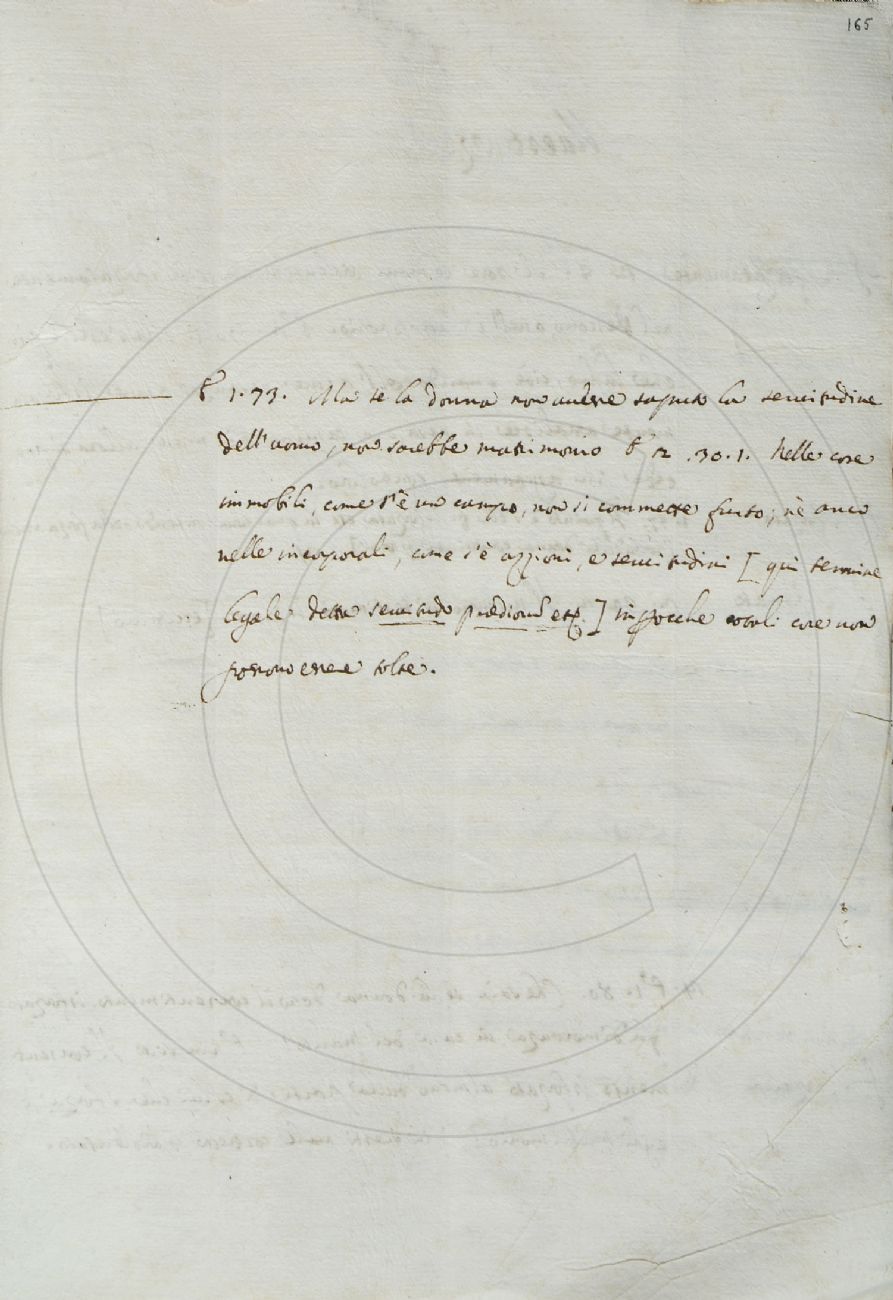 165
1.73. Ma se la donna non avesse saputo la servitudine
dell'uomo, non sarebbe matrimonio 12.30.1. Nelle cose
immobili, come s'è un campo, non si commette furto; nè anco
nelle incorporali, come s'è azzioni, e servitudini [ qui termine
legale dette servitudo prædiorū etc. ] impocche cotali cose non
possono essere tolte.